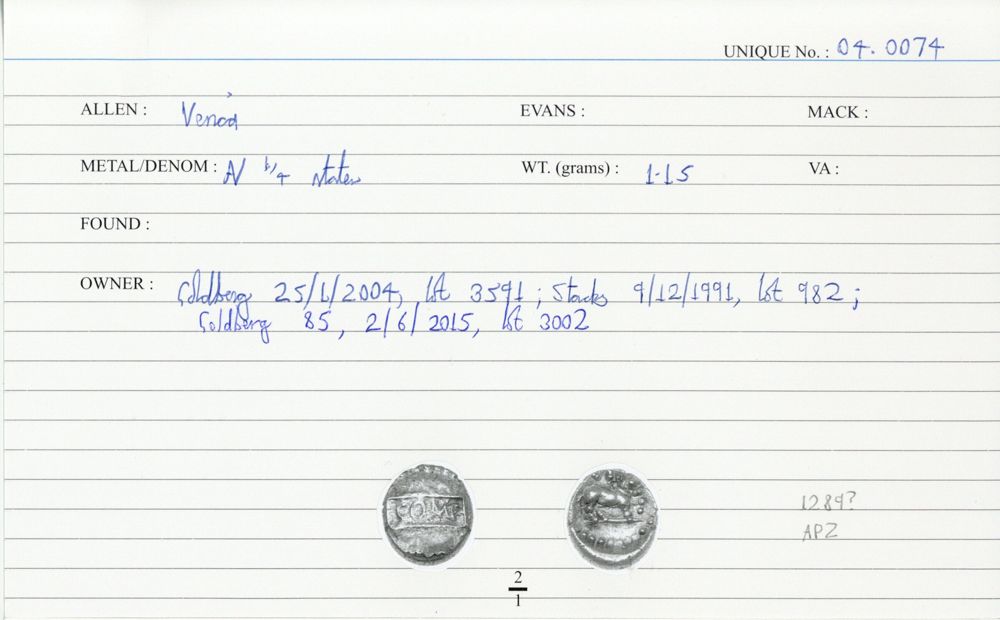 UNIQUE No. : 04.0074
ALLEN : Verica EVANS : MACK :
METAL/DENOM : AV 1/4 stater WT. (grams) : 1.15 VA :
FOUND :
OWNER : Goldberg 25/1/2004, lot 3591 ; Stacks 9/12/1991, lot 982 ;
Goldberg 85, 2/6/2015, lot 3002
COMF
1289?
APZ
2
1